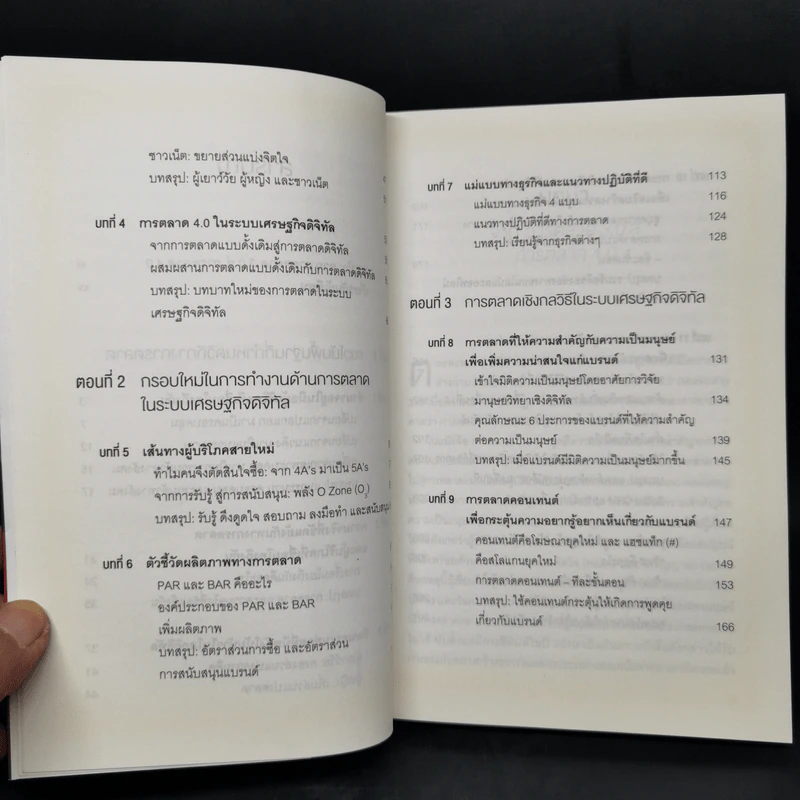 ชาวเน็ต: ขยายส่วนแบ่งจิตใจ
บทสรุป: ผู้เยาว์วัย ผู้หญิง และชาวเน็ต
บทที่ 4 การตลาด 4.0 ในระบบเศรษฐกิจดิจิทัล
จากการตลาดแบบดั้งเดิมสู่การตลาดดิจิทัล
ผสมผสานการตลาดแบบดั้งเดิมกับการตลาดดิจิทัล
บทสรุป: บทบาทใหม่ของการตลาดในระบบ
เศรษฐกิจดิจิทัล
ตอนที่ 2 กรอบใหม่ในการทำงานด้านการตลาด
ในระบบเศรษฐกิจดิจิทัล
บทที่ 5 เส้นทางผู้บริโภคสายใหม่
ทำไมคนจึงตัดสินใจซื้อ: จาก 4A's มาเป็น 5A's
จากการรับรู้ สู่การสนับสนุน: พลัง O Zone (O3)
บทสรุป: รับรู้ ดึงดูดใจ สอบถาม ลงมือทำ และสนับสนุน
บทที่ 6 ตัวชี้วัดผลิตภาพทางการตลาด
PAR และ BAR คืออะไร
องค์ประกอบของ PAR และ BAR
เพิ่มผลิตภาพ
บทสรุป: อัตราส่วนการซื้อ และอัตราส่วน
การสนับสนุนแบรนด์
บทที่ 7 แม่แบบทางธุรกิจและแนวทางปฏิบัติที่ดี 113
แม่แบบทางธุรกิจ 4 แบบ 116
แนวทางปฏิบัติที่ดีทางการตลาด 124
บทสรุป: เรียนรู้จากธุรกิจต่างๆ 128
ตอนที่ 3 การตลาดเชิงกลวิธีในระบบเศรษฐกิจดิจิทัล
บทที่ 8 การตลาดที่ให้ความสำคัญกับความเป็นมนุษย์
เพื่อเพิ่มความน่าสนใจแก่แบรนด์ 131
เข้าใจมิติความเป็นมนุษย์โดยอาศัยการวิจัย
มานุษยวิทยาเชิงดิจิทัล 134
คุณลักษณะ 6 ประการของแบรนด์ที่ให้ความสำคัญ
ต่อความเป็นมนุษย์ 139
บทสรุป: เมื่อแบรนด์มีมิติความเป็นมนุษย์มากขึ้น 145
บทที่ 9 การตลาดคอนเทนต์
เพื่อกระตุ้นความอยากรู้อยากเห็นเกี่ยวกับแบรนด์ 147
คอนเทนต์คือโฆษณายุคใหม่ และ แฮชแท็ก (#)
คือสโลแกนยุคใหม่ 149
การตลาดคอนเทนต์ – ทีละขั้นตอน 153
บทสรุป: ใช้คอนเทนต์กระตุ้นให้เกิดการพูดคุย
เกี่ยวกับแบรนด์ 166